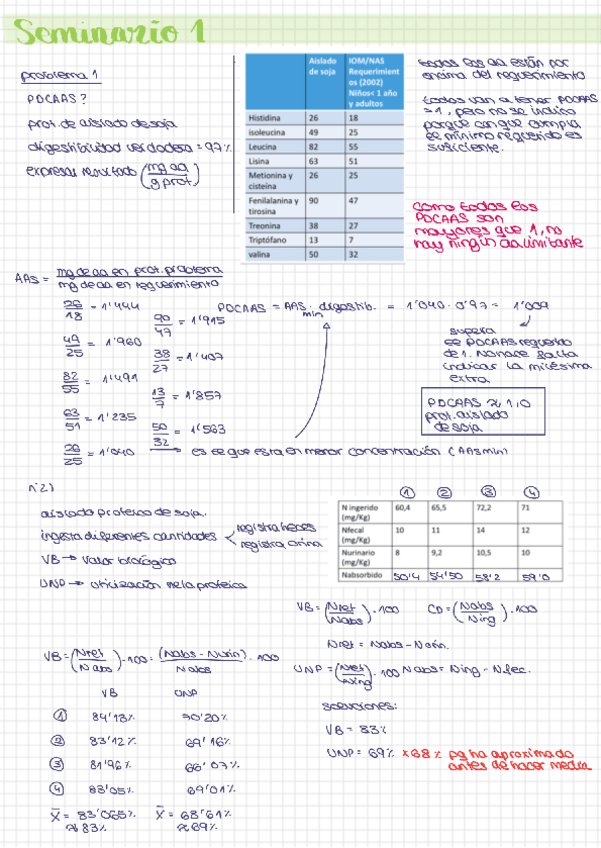 Seminario 1
problema 1
PDCAAS?
prot. de aislado de soja
digestibilidad verdadera = 97%
expresar resultado (mg aa / g prot.)
Aislado de soja	IOM/NAS Requerimientos (2002) Niños< 1 año y adultos
Histidina	26	18
isoleucina	49	25
Leucina	82	55
Lisina	63	51
Metionina y cisteína	26	25
Fenilalanina y tirosina	90	47
Treonina	38	27
Triptófano	13	7
valina	50	32
todos los aa están por
encima del requerimiento
todos van a tener PDCAAS
>1, pero no se indica
porque con que cumpla
el mínimo requerido es
suficiente.
como todos los
PDCAAS son
mayores que 1, no
hay ningún aa limitante
AAS = mg de aa en prot. problema / mg de aa en requerimiento
26/18 = 1'444
49/25 = 1'960
82/55 = 1'491
63/51 = 1'235
26/25 = 1'040
90/47 = 1'915
38/27 = 1'407
13/7 = 1'857
50/32 = 1'563
→ es el que esta en menor concentración (AAS min)
PDCAAS = AAS min · digestib. = 1'040 · 0'97 = 1'009
supera
el PDCAAS requerido
de 1. No hace falta
indicar la milésima
extra.
PDCAAS ≈ 1,0
prot. aislado
de soja
n'2)
aislado proteico de soja.
ingesta diferentes cantidades < registra heces
registra orina
VB → valor biológico
UNP → utilización neta proteica
① ② ③ ④
N ingerido (mg/Kg)	60,4	65,5	72,2	71
Nfecal (mg/Kg)	10	11	14	12
Nurinario (mg/Kg)	8	9,2	10,5	10
Nabsorbido	50'4	54'50	58'2	59'0
VB = (Nret / Nabs) · 100 CD = (Nabs / Ning) · 100
Nret = Nabs - Norin.
VB = (Nret / Nabs) · 100 = (Nabs - Nurin) / Nabs · 100
UNP = (Nret / Ning) · 100 Nabs = Ning - Nfec.
VB UNP
① 84'13% 70'20%
② 83'12% 69'16%
③ 81'96% 66'07%
④ 83'05% 69'01%
x̄ = 83'065% x̄ = 68'61%
≈ 83% ≈ 69%
soluciones:
VB = 83%
UNP = 69% * 68% pq ha aproximado
antes de hacer media